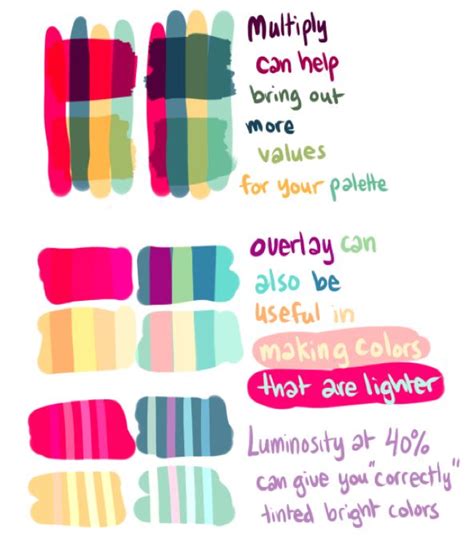 Multiply
can help
bring out
more
values
for your palette
overlay can
also be
useful in
making colors
that are lighter
Luminosity at 40%
can give you "correctly"
tinted bright colors